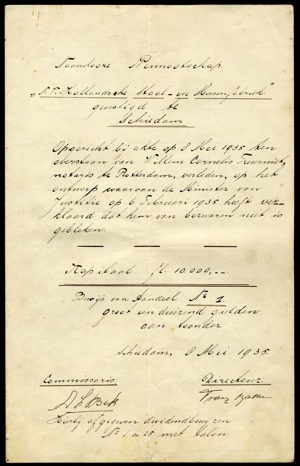 Naamlooze Vennootschap
"N.V. Hollandsche Staal- en
gevestigd te
Schiedam
Opgericht bij akte op 8 Mei 1935 ten
overstaan van Willem Cornelis Treurniet,
notaris te Rotterdam, verleden, op het
ontwerp waarvan de Minister van
Justitie op 6 Februari 1935 heeft ver-
klaard dat hem van bezwaren niet is
gebleken.
Kapitaal fl 10.000,--
Bewijs van aandeel No 1
groot en duizend gulden
aan toonder
Schiedam, 8 Mei 1935.
Commissaris Directeur
Hierbij afgegeven dividendbewijzen
No 1 a 25 met talon